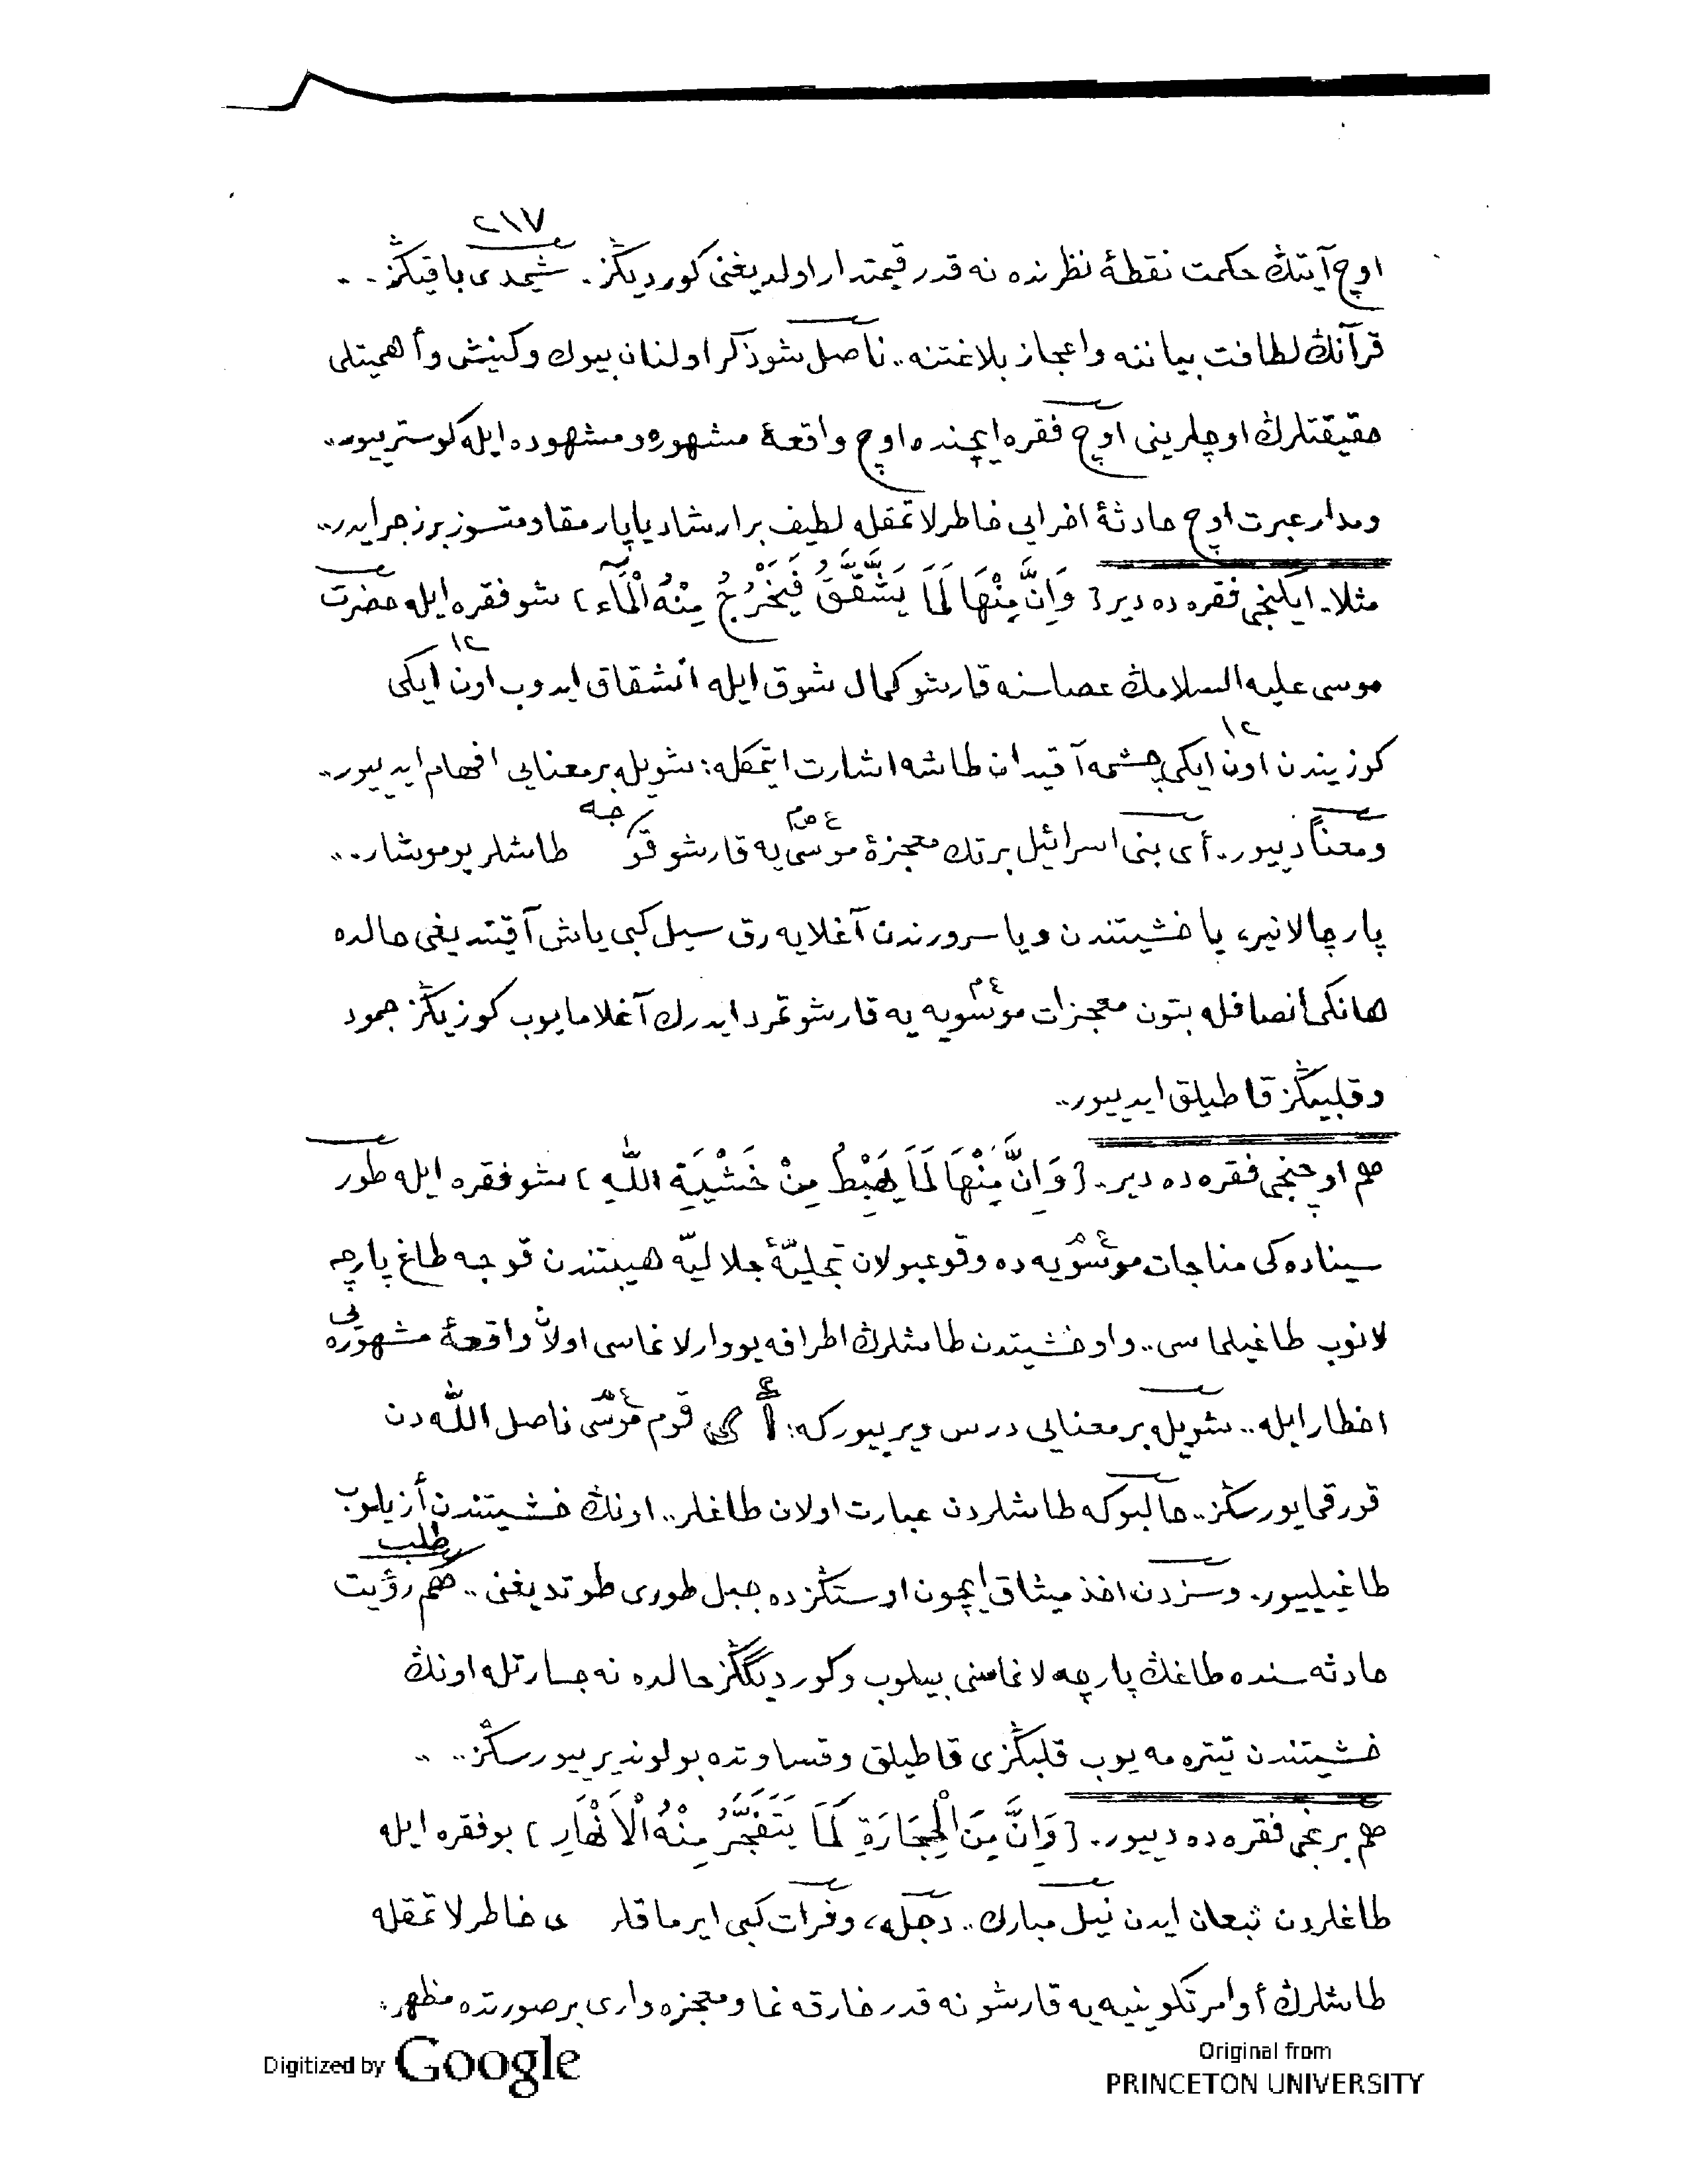 ٢١٧
اوچ آيتڭ حكمت نقطۀ نظرنده نه قدر قيمتدار اولديغنى كورديڭز. شيمدى باقيڭز..
قرآنڭ لطافت بياننه واعجاز بلاغتنه.. ناصل شو ذكر اولنان بيوك وكنيش وأهميتلى
حقيقتلرڭ اوچلرينى اوچ فقره ايچنده اوچ واقعۀ مشهوره ومشهوده ايله كوسترييور..
ومدار عبرت اوچ حادثۀ اخرايى خاطرلاتمقله لطيف بر ارشاد ياپار مقاومتسوز بر زجر ايدر..
مثلا. ايكنجى فقره ده دير { وَاِنَّ مِنْهَا لَمَا يَشَّقَّقُ فَيَخْرُجُ مِنْهُ الْمَٓاءُ } شو فقره ايله حضرت
موسى عليه السلامڭ عصاسنه قارشو كمال شوق ايله انشقاق ايدوب اون ايكى ١٢
كوزيندن اون ايكى ١٢ چشمه آقيدان طاشه اشارت ايتمكله: شويله بر معنايى افهام ايدييور..
ومعناً دييور. أى بنى اسرائيل بر تك معجزۀ موسى يه ع م قارشو قوجه طاشلر يوموشار..
پارچالانير، يا خشيتندن ويا سرورندن آغلايه رق سيل كبى ياش آقيتديغى حالده
هانكى أنصافله بتون معجزات موسويه يه ع م قارشو تمرد ايدرك آغلامايوب كوزيڭز جمود
وقلبيڭز قاطيلق ايدييور..
هم اوچنجى فقره ده دير. { وَاِنَّ مِنْهَا لَمَا يَهْبِطُ مِنْ خَشْيَةِ اللّٰهِ } شو فقره ايله طور
سيناده كى مناجات موسويه ده ع م وقوعبولان تجليۀ جلاليه هيبتندن قوجه طاغ پارچه
لانوب طاغيلماسى.. واو خشيتدن طاشلرڭ اطرافه يووارلانماسى اولان واقعۀ مشهوره يى
اخطار ايله.. شويله بر معنايى درس ويرييور كه: أى قوم موسى ع م ناصل اللّٰه دن
قورقمايورسڭز.. حالبوكه طاشلردن عبارت اولان طاغلر.. اونڭ خشيتندن أزيلوب
طاغيلييور. وسزدن اخذ ميثاق ايچون اوستڭزده جبل طورى طوتديغنى.. هم طلب رؤيت
حادثه سنده طاغڭ پارچه لانماسنى بيلوب وكورديگڭز حالده نه جسارتله اونڭ
خشيتندن تيتره مه يوب قلبڭزى قاطيلق وقساوتده بولونديرييورسڭز.. ..
هم برنجى فقره ده دييور. { وَاِنَّ مِنَ الْحِجَارَةِ لَمَا يَتَفَجَّرُ مِنْهُ الْاَنْهَارُ } بو فقره ايله
طاغلردن نبعان ايدن نيل مبارك.. دجله، وفرات كبى ايرماقلرى خاطرلاتمقله
طاشلرڭ أوامر تكوينيه يه قارشو نه قدر خارقه نما ومعجزه وارى بر صورتده مظهر
Digitized by Google
Original from
PRINCETON UNIVERSITY